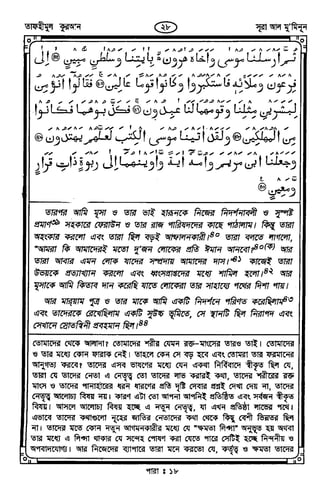 তাফহীমুল কুরআন
২৮
সূরা আল মু'মিনূন
ثُمَّ اَرْسَلْنَا مُوْسٰى وَاَخَاهُ هٰرُوْنَ بِاٰيٰتِنَا وَسُلْطٰنٍ مُّبِيْنٍ ۝ اِلٰى
فِرْعَوْنَ وَمَلَا۟ئِهٖ فَاسْتَكْبَرُوْا وَكَانُوْا قَوْمًا عَالِيْنَ ۝ فَقَالُوْا اَنُؤْمِنُ
لِبَشَرَيْنِ مِثْلِنَا وَقَوْمُهُمَا لَنَا عٰبِدُوْنَ ۝ فَكَذَّبُوْهُمَا فَكَانُوْا
مِنَ الْمُهْلَكِيْنَ ۝ وَلَقَدْ اٰتَيْنَا مُوْسَى الْكِتٰبَ لَعَلَّهُمْ يَهْتَدُوْنَ ۝
وَجَعَلْنَا ابْنَ مَرْيَمَ وَاُمَّهٗٓ اٰيَةً وَّاٰوَيْنٰهُمَآ اِلٰى رَبْوَةٍ ذَاتِ قَرَارٍ
وَّمَعِيْنٍ ۝
তারপর আমি মূসা ও তার ভাই হারুনকে নিজের নিদর্শনাবলী ও সুস্পষ্ট
প্রমাণ৩৯ সহকারে ফেরাউন ও তার রাজ পারিষদদের কাছে পাঠালাম। কিন্তু তারা
অহংকার করলো এবং তারা ছিল বড়ই আস্ফালনকারী।৪০ তারা বলতে লাগলো,
"আমরা কি আমাদেরই মতো দু'জন লোকের প্রতি ঈমান আনবো?৪০(ক) আর
তারা আবার এমন লোক যাদের সম্প্রদায় আমাদের দাস।"৪১ কাজেই তারা
উভয়কে প্রত্যাখ্যান করলো এবং ধ্বংসপ্রাপ্তদের মধ্যে শামিল হলো।৪২ আর
মূসাকে আমি কিতাব দান করেছি যাতে লোকেরা তার সাহায্যে পথের দিশা পায়।
আর মারয়াম পুত্র ও তার মাকে আমি একটি নিদর্শনে পরিণত করেছিলাম৪৩
এবং তাদেরকে রেখেছিলাম একটি সুউচ্চ ভূমিতে, সে স্থানটি ছিল নিরাপদ এবং
সেখানে স্রোতস্বিনী প্রবহমান ছিল।৪৪
তোমাদের থেকে আলাদা। তোমাদের শরীর যেমন রক্ত–মাংসের তারও তাই। তোমাদের
ও তার মধ্যে কোন ফারাক নেই। তাহলে কেন সে বড় হবে এবং তোমরা তার ফরমানের
আনুগত্য করবে? তাদের এসব ভাষণের মধ্যে যেন একথা নির্বিবাদে স্বীকৃত ছিল যে,
তারা যে তাদের নেতা এ নেতৃত্ব তো তাদের লাভ করারই কথা, তাদের শরীরের রক্ত
মাংস ও তাদের পানাহারের ধরন ধারণের প্রতি দৃষ্টি দেবার প্রশ্নই দেখা দেয় না, তাদের
নেতৃত্ব আলোচ্য বিষয় নয়। কারণ এটা তো আপনা আপনিই প্রতিষ্ঠিত এবং সর্বজন স্বীকৃত
বিষয়। আসলে আলোচ্য বিষয় হচ্ছে এ নতুন নেতৃত্ব, যা এখন প্রতিষ্ঠা লাভের পথে।
এভাবে তাদের কথাগুলো নূহের জাতির নেতাদের কথা থেকে কিছু বেশী ভিন্নতর ছিল
না। তাদের মতে কোন নতুন আগমনকারীর মধ্যে যে "ক্ষমতা লিপ্সা" অনুভূত হয় অথবা
তার মধ্যে এ লিপ্সা থাকার যে সন্দেহ পোষণ করা যেতে পারে সেটিই হচ্ছে নিন্দনীয় ও
অপবাদযোগ্য। আর নিজেদের ব্যাপারে তারা মনে করতো যে, কর্তৃত্ব ও ক্ষমতা তাদের
পারা : ১৮